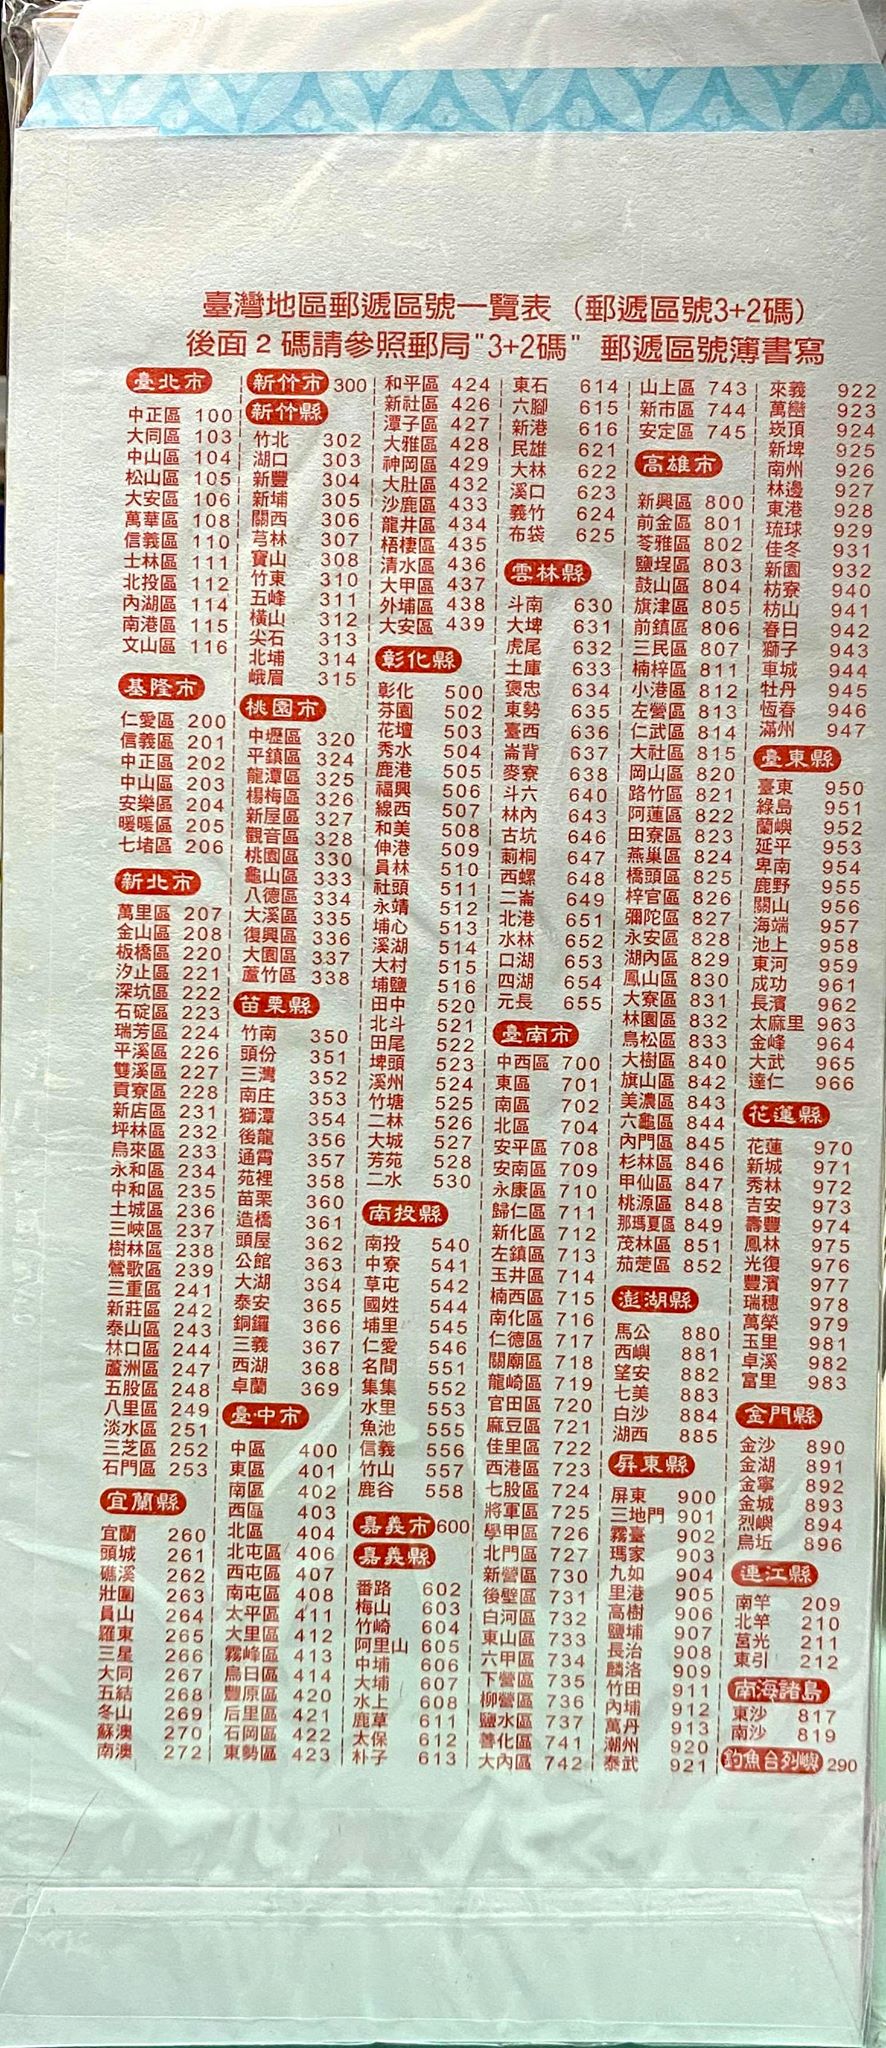 臺灣地區郵遞區號一覽表（郵遞區號3+2碼）
後面2碼請參照郵局"3+2碼" 郵遞區號簿書寫
臺北市
中正區 100
大同區 103
中山區 104
松山區 105
大安區 106
萬華區 108
信義區 110
士林區 111
北投區 112
內湖區 114
南港區 115
文山區 116
基隆市
仁愛區 200
信義區 201
中正區 202
中山區 203
安樂區 204
暖暖區 205
七堵區 206
新北市
萬里區 207
金山區 208
板橋區 220
汐止區 221
深坑區 222
石碇區 223
瑞芳區 224
平溪區 226
雙溪區 227
貢寮區 228
新店區 231
坪林區 232
烏來區 233
永和區 234
中和區 235
土城區 236
三峽區 237
樹林區 238
鶯歌區 239
三重區 241
新莊區 242
泰山區 243
林口區 244
蘆洲區 247
五股區 248
八里區 249
淡水區 251
三芝區 252
石門區 253
宜蘭縣
宜蘭 260
頭城 261
礁溪 262
壯圍 263
員山 264
羅東 265
三星 266
大同 267
五結 268
冬山 269
蘇澳 270
南澳 272
新竹市 300
新竹縣
竹北 302
湖口 303
新豐 304
新埔 305
關西 306
芎林 307
寶山 308
竹東 310
五峰 311
橫山 312
尖石 313
北埔 314
峨眉 315
桃園市
中壢區 320
平鎮區 324
龍潭區 325
楊梅區 326
新屋區 327
觀音區 328
桃園區 330
龜山區 333
八德區 334
大溪區 335
復興區 336
大園區 337
蘆竹區 338
苗栗縣
竹南 350
頭份 351
三灣 352
南庄 353
獅潭 354
後龍 356
通霄 357
苑裡 358
苗栗 360
造橋 361
頭屋 362
公館 363
大湖 364
泰安 365
銅鑼 366
三義 367
西湖 368
卓蘭 369
臺中市
中區 400
東區 401
南區 402
西區 403
北區 404
北屯區 406
西屯區 407
南屯區 408
太平區 411
大里區 412
霧峰區 413
烏日區 414
豐原區 420
后里區 421
石岡區 422
東勢區 423
和平區 424
新社區 426
潭子區 427
大雅區 428
神岡區 429
大肚區 432
沙鹿區 433
龍井區 434
梧棲區 435
清水區 436
大甲區 437
外埔區 438
大安區 439
彰化縣
彰化 500
芬園 502
花壇 503
秀水 504
鹿港 505
福興 506
線西 507
和美 508
伸港 509
員林 510
社頭 511
永靖 512
埔心 513
溪湖 514
大村 515
埔鹽 516
田中 520
北斗 521
田尾 522
埤頭 523
溪州 524
竹塘 525
二林 526
大城 527
芳苑 528
二水 530
南投縣
南投 540
中寮 541
草屯 542
國姓 544
埔里 545
仁愛 546
名間 551
集集 552
水里 553
魚池 555
信義 556
竹山 557
鹿谷 558
嘉義市 600
嘉義縣
番路 602
梅山 603
竹崎 604
阿里山 605
中埔 606
大埔 607
水上 608
鹿草 611
太保 612
朴子 613
東石 614
六腳 615
新港 616
民雄 621
大林 622
溪口 623
義竹 624
布袋 625
雲林縣
斗南 630
大埤 631
虎尾 632
土庫 633
褒忠 634
東勢 635
臺西 636
崙背 637
麥寮 638
斗六 640
林內 643
古坑 646
莿桐 647
西螺 648
二崙 649
北港 651
水林 652
口湖 653
四湖 654
元長 655
臺南市
中西區 700
東區 701
南區 702
北區 704
安平區 708
安南區 709
永康區 710
歸仁區 711
新化區 712
左鎮區 713
玉井區 714
楠西區 715
南化區 716
仁德區 717
關廟區 718
龍崎區 719
官田區 720
麻豆區 721
佳里區 722
西港區 723
七股區 724
將軍區 725
學甲區 726
北門區 727
新營區 730
後壁區 731
白河區 732
東山區 733
六甲區 734
下營區 735
柳營區 736
鹽水區 737
善化區 741
大內區 742
山上區 743
新市區 744
安定區 745
高雄市
新興區 800
前金區 801
苓雅區 802
鹽埕區 803
鼓山區 804
旗津區 805
前鎮區 806
三民區 807
楠梓區 811
小港區 812
左營區 813
仁武區 814
大社區 815
岡山區 820
路竹區 821
阿蓮區 822
田寮區 823
燕巢區 824
橋頭區 825
梓官區 826
彌陀區 827
永安區 828
湖內區 829
鳳山區 830
大寮區 831
林園區 832
鳥松區 833
大樹區 840
旗山區 842
美濃區 843
六龜區 844
內門區 845
杉林區 846
甲仙區 847
桃源區 848
那瑪夏區 849
茂林區 851
茄萣區 852
澎湖縣
馬公 880
西嶼 881
望安 882
七美 883
白沙 884
湖西 885
屏東縣
屏東 900
三地門 901
霧臺 902
瑪家 903
九如 904
里港 905
高樹 906
鹽埔 907
長治 908
麟洛 909
竹田 911
內埔 912
萬丹 913
潮州 920
泰武 921
來義 922
萬巒 923
崁頂 924
新埤 925
南州 926
林邊 927
東港 928
琉球 929
佳冬 931
新園 932
枋寮 940
枋山 941
春日 942
獅子 943
車城 944
牡丹 945
恆春 946
滿州 947
臺東縣
臺東 950
綠島 951
蘭嶼 952
延平 953
卑南 954
鹿野 955
關山 956
海端 957
池上 958
東河 959
成功 961
長濱 962
太麻里 963
金峰 964
大武 965
達仁 966
花蓮縣
花蓮 970
新城 971
秀林 972
吉安 973
壽豐 974
鳳林 975
光復 976
豐濱 977
瑞穗 978
萬榮 979
玉里 981
卓溪 982
富里 983
金門縣
金沙 890
金湖 891
金寧 892
金城 893
烈嶼 894
烏坵 896
連江縣
南竿 209
北竿 210
莒光 211
東引 212
南海諸島
東沙 817
南沙 819
釣魚台列嶼 290